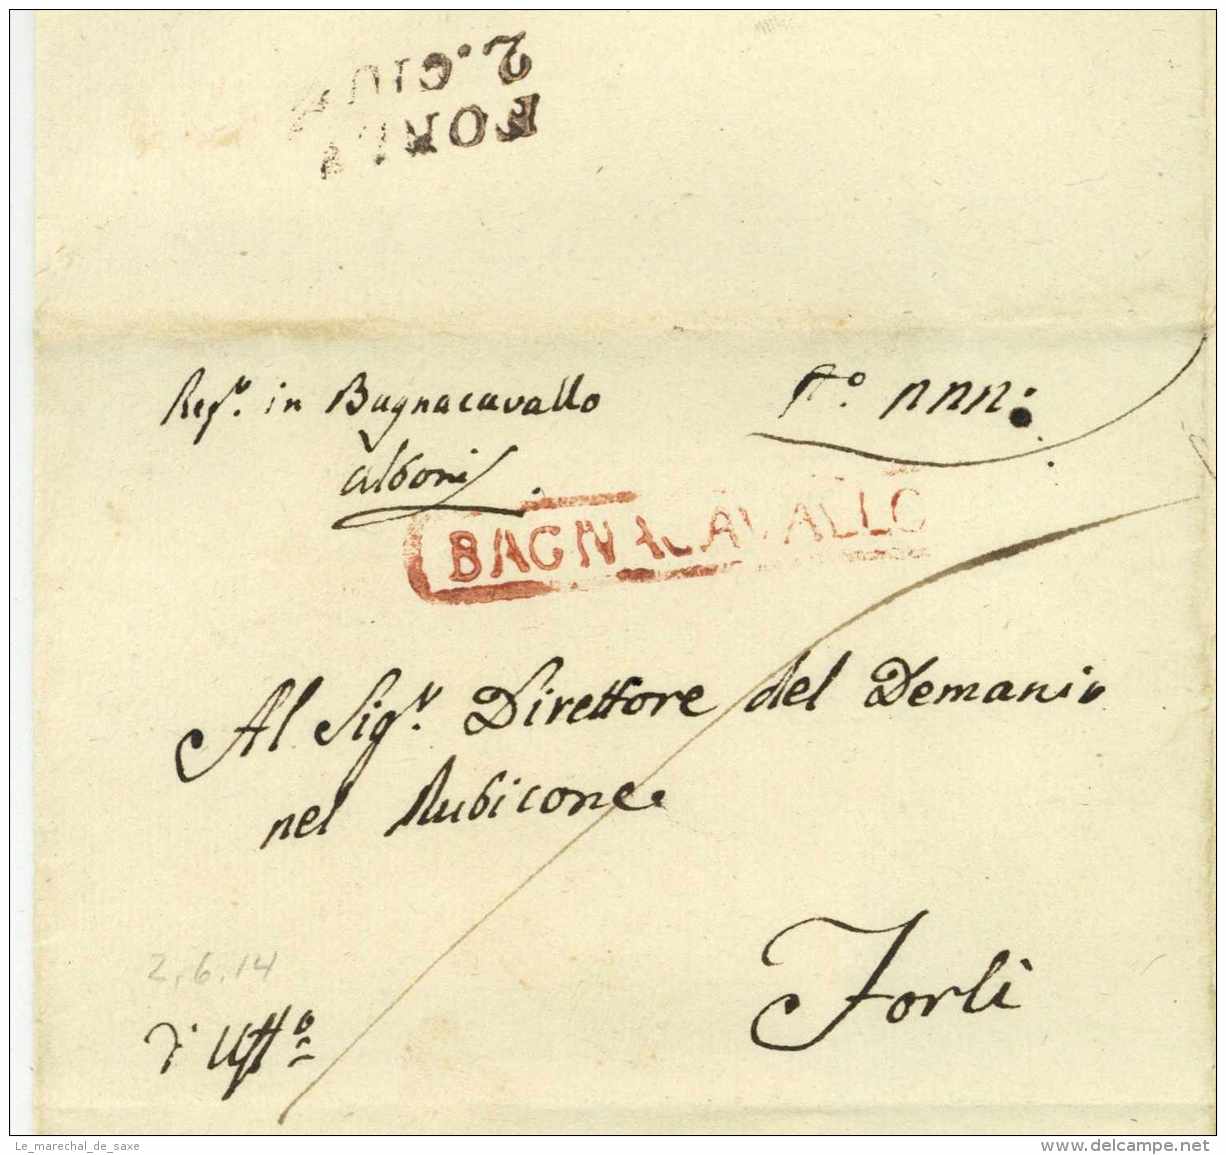 2.GIU
FORLI
Regr. in Bagnacavallo
Alboni
N° nnn:
BAGNACAVALLO
Al Sigr. Direttore del Demanio
nel Rubicone
2.6.14
Forlì
d'Uffo
Le_marechal_de_saxe
www.delcampe.net